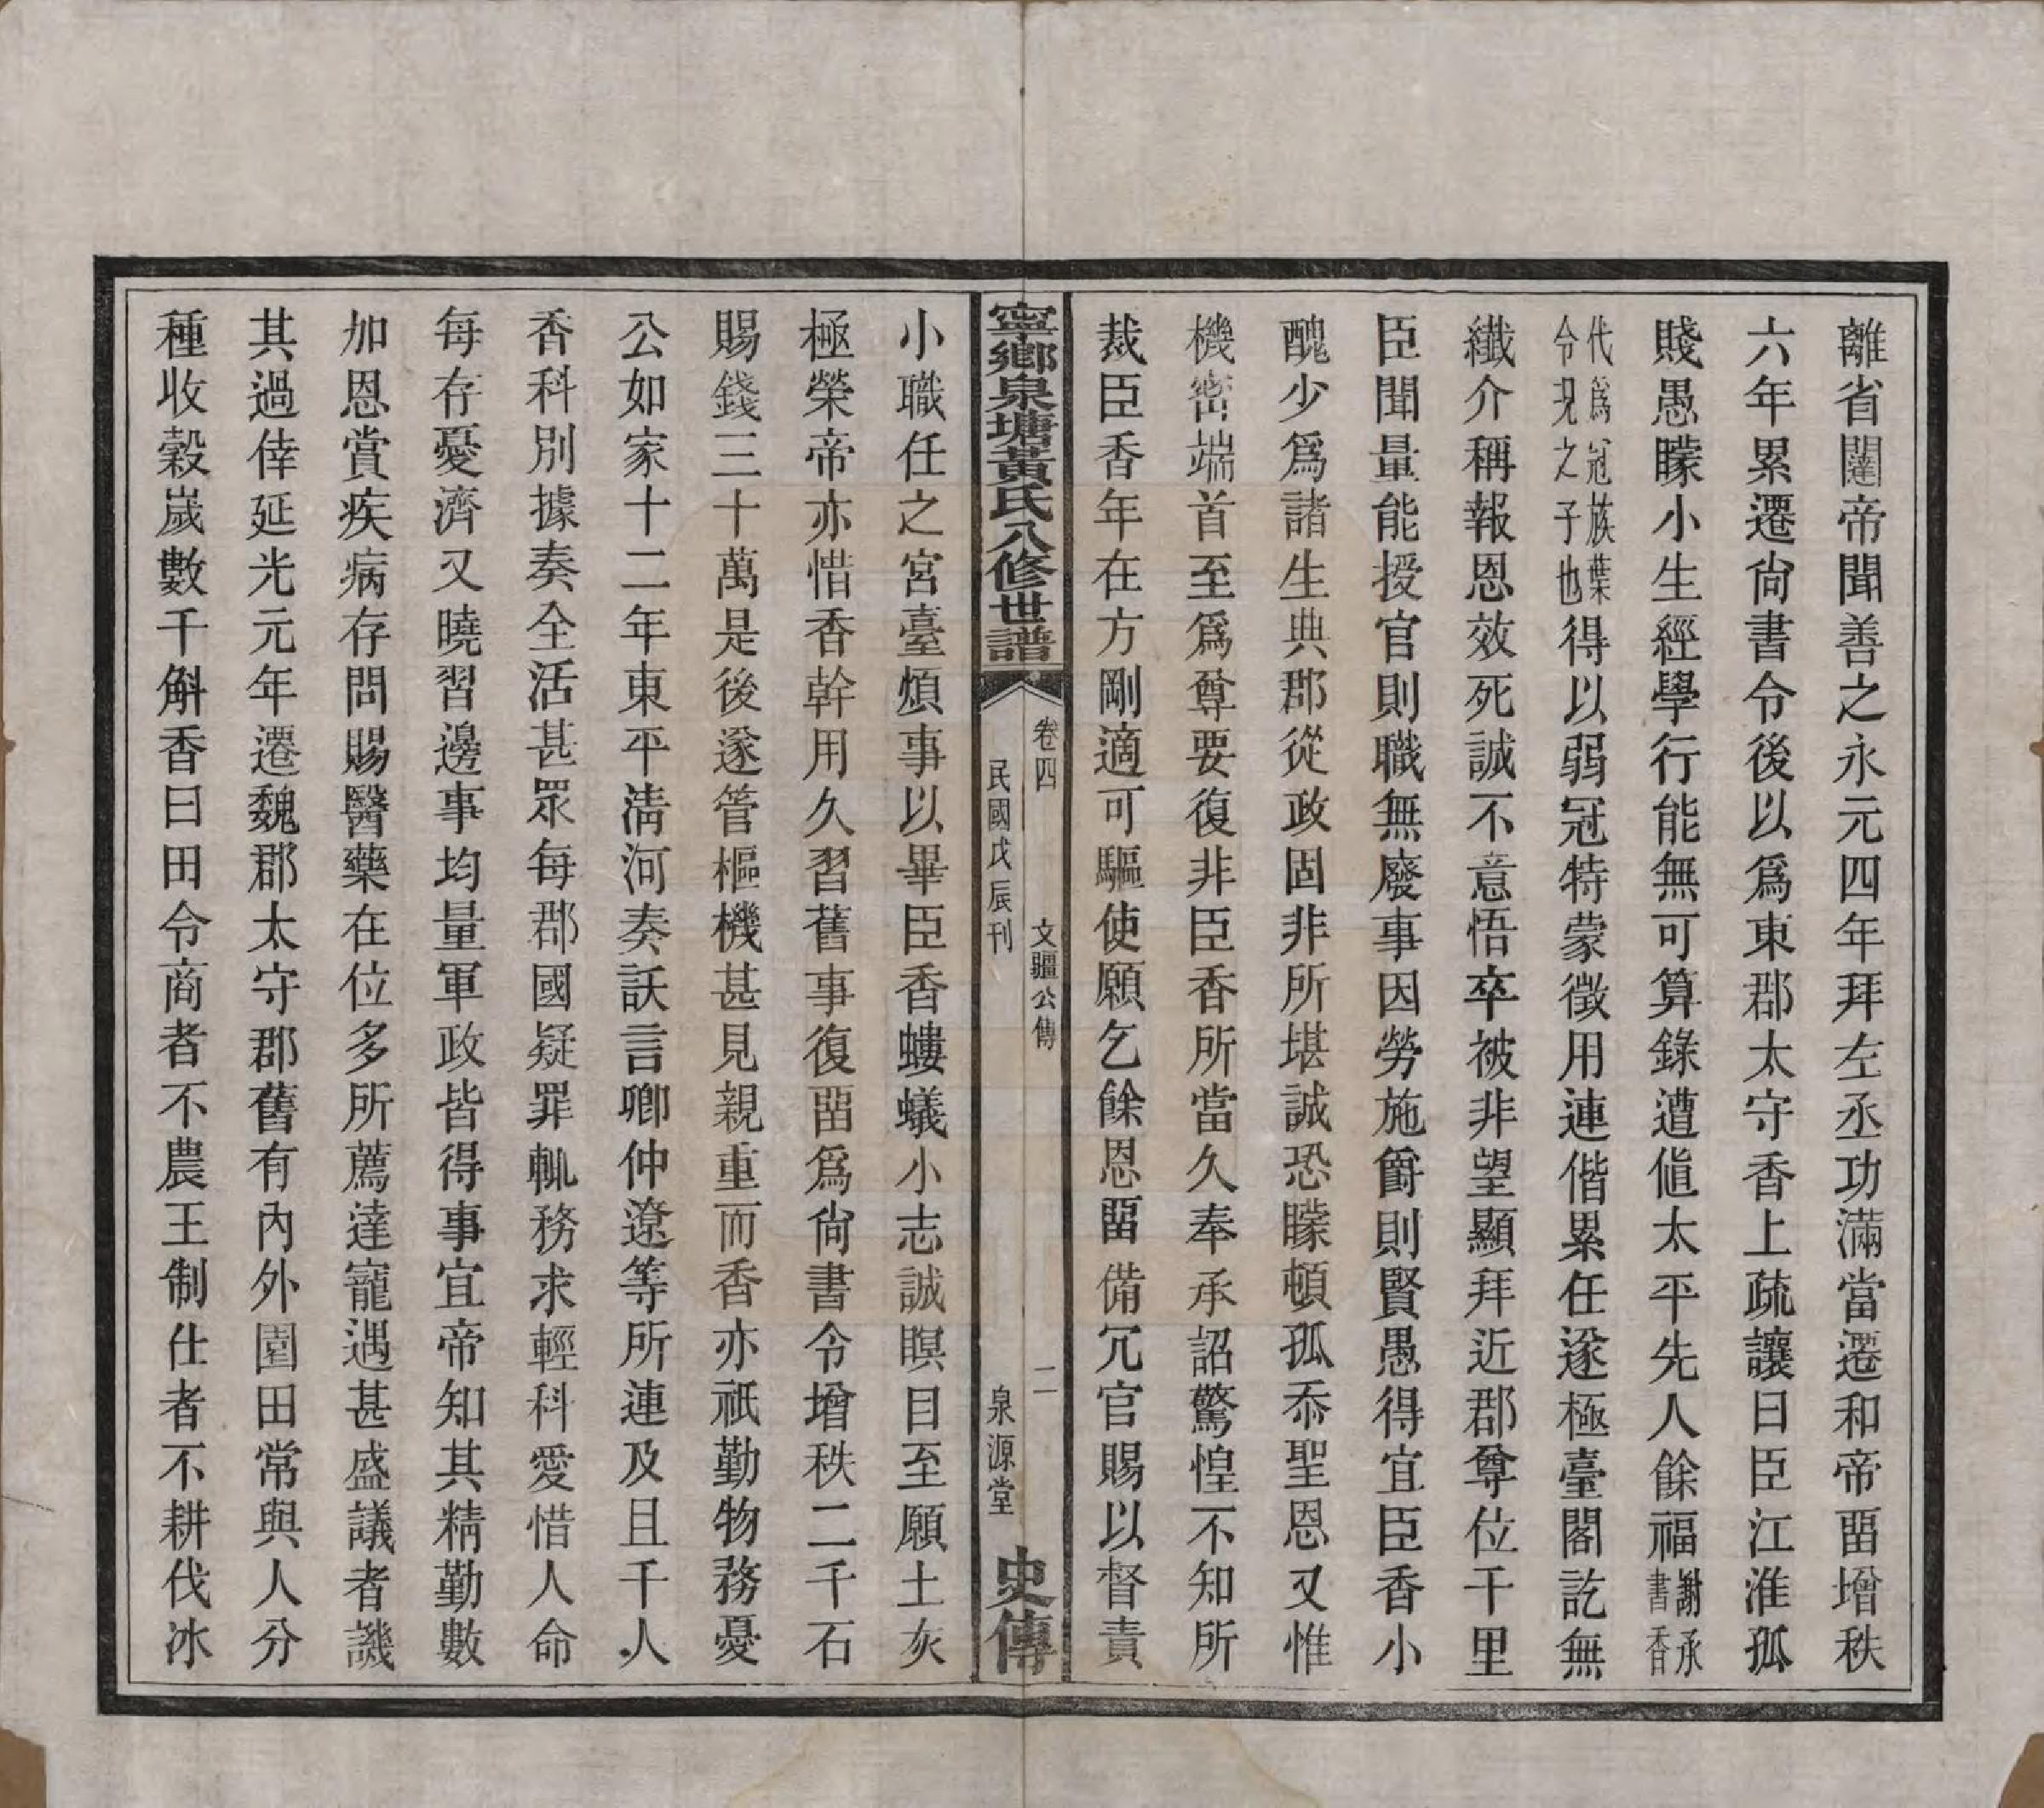 離省闥帝聞善之永元四年拜左丞功滿當遷和帝畱增秩
六年累遷尙書令後以爲東郡太守香上疏讓曰臣江淮孤
賤愚矇小生經學行能無可算錄遭値太平先人餘福謝承書香
代爲冠族葉令況之子也得以弱冠特蒙徵用連偕累任遂極臺閣訖無
纖介稱報恩效死誠不意悟卒被非望顯拜近郡尊位千里
臣聞量能授官則職無廢事因勞施爵則賢愚得宜臣香小
醜少爲諸生典郡從政固非所堪誠恐矇頓孤忝聖恩又惟
機密端首至爲尊要復非臣香所當久奉承詔驚惶不知所
裁臣香年在方剛適可驅使願乞餘恩畱備冗官賜以督責
寧鄉泉塘黃氏八修世譜
卷四 文疆公傳 二
民國戊辰刊 泉源堂
史傳
小職任之宮臺煩事以畢臣香螻蟻小志誠瞑目至願土灰
極榮帝亦惜香幹用久習舊事復畱爲尙書令增秩二千石
賜錢三十萬是後遂管樞機甚見親重而香亦祇勤物務憂
公如家十二年東平淸河奏訞言卿仲遼等所連及且千人
香科別據奏全活甚眾每郡國疑罪輒務求輕科愛惜人命
每存憂濟又曉習邊事均量軍政皆得事宜帝知其精勤數
加恩賞疾病存問賜醫藥在位多所薦達寵遇甚盛議者譏
其過倖延光元年遷魏郡太守郡舊有內外園田常與人分
種收穀歲數千斛香曰田令商者不農王制仕者不耕伐冰